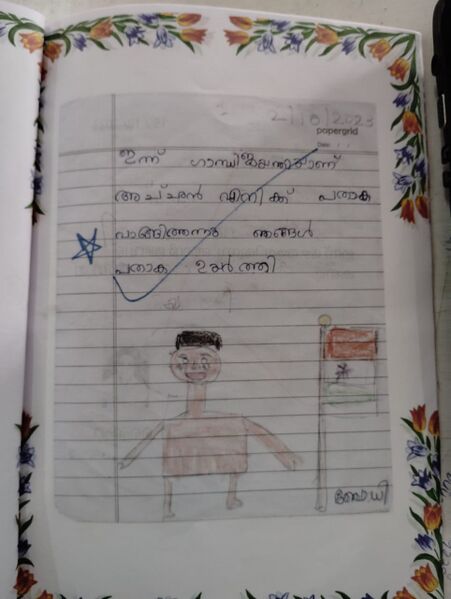 2/10/2023
papergrid
Date: / /
ഇന്ന് ഗാന്ധിജയന്തിയാണ്
അച്ഛൻ എനിക്ക് പതാക
വാങ്ങിത്തന്നു ഞങ്ങൾ
പതാക ഉയർത്തി